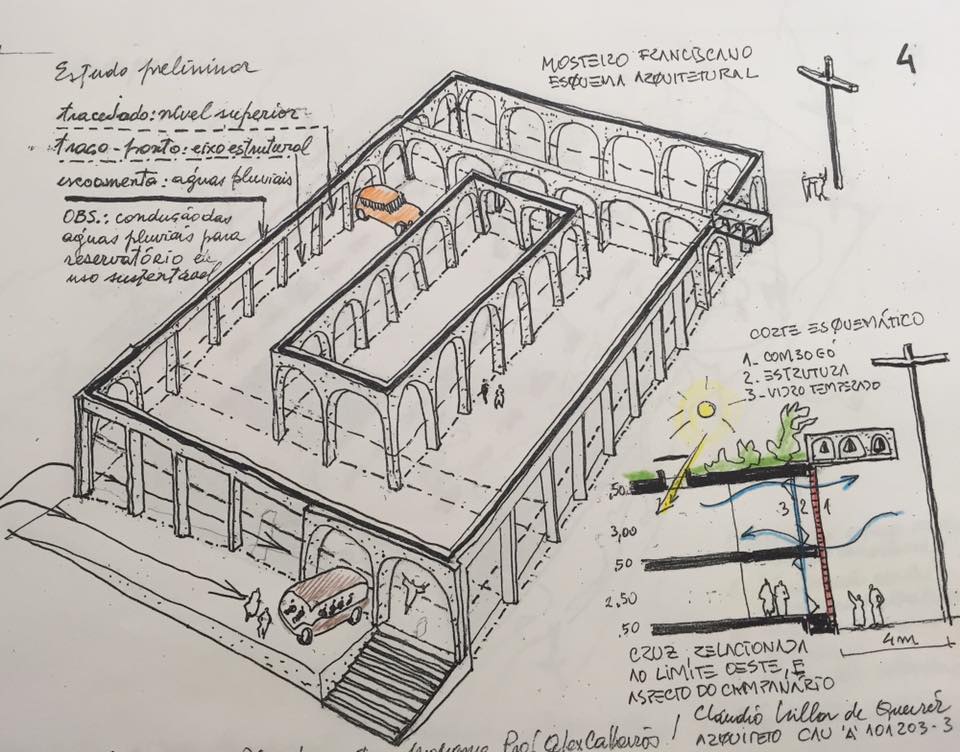 Estudo preliminar
tracejado: nível superior
traço-ponto: eixo estrutural
escoamento: águas pluviais
OBS.: condução das
águas pluviais para
reservatório e
uso sustentável
MOSTEIRO FRANCISCANO
ESQUEMA ARQUITETURAL
4
CORTE ESQUEMÁTICO
1- COMBOGÓ
2. ESTRUTURA
3-VIDRO TEMPERADO
.50
3,00
.50
2.50
.50
3 2 1
4m
CRUZ RELACIONADA
AO LIMITE OESTE, E
ASPECTO DO CAMPANÁRIO
Claudio Villar de Queiroz
ARQUITETO CAU 'A' 101203-3
Prof Alex Calheiros!